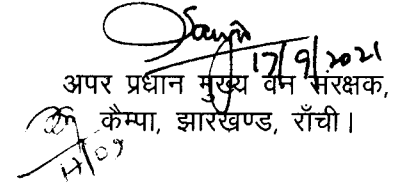 17/9/2021
अपर प्रधान मुख्य वन संरक्षक,
कैम्पा, झारखण्ड, राँची।